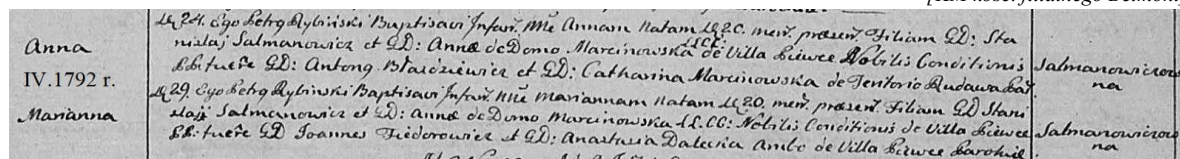 Anna
IV.1792 r.
Marianna
D 24. Ego Petrg Rybiński Baptisavi Infan. Nne Annam Natam D 20. men. præsen. Filiam GD: Sta
nislaj Salmanowicz et GD: Annæ de Domo Marcinowska LLCC: de Villa Nobilis Conditionis
PP. fuere GD: Antong et GD: Catharina Marcinowska de Teritorio Rudawa
D 29. Ego Petrg Rybinski Baptisavi Infan. Nne Mariannam Natam D 20. men. præsen. Filiam GD Stani
slaj Salmanowicz et GD: Annæ de Domo Marcinowska LL.CC: Nobilis Conditionis de Villa
PP. fuere GD Joannes Fiedorowicz et GD: Anastasia Dalecka Ambo de Villa Parochiæ
Salmanowiczow
na
Salmanowiczow
na